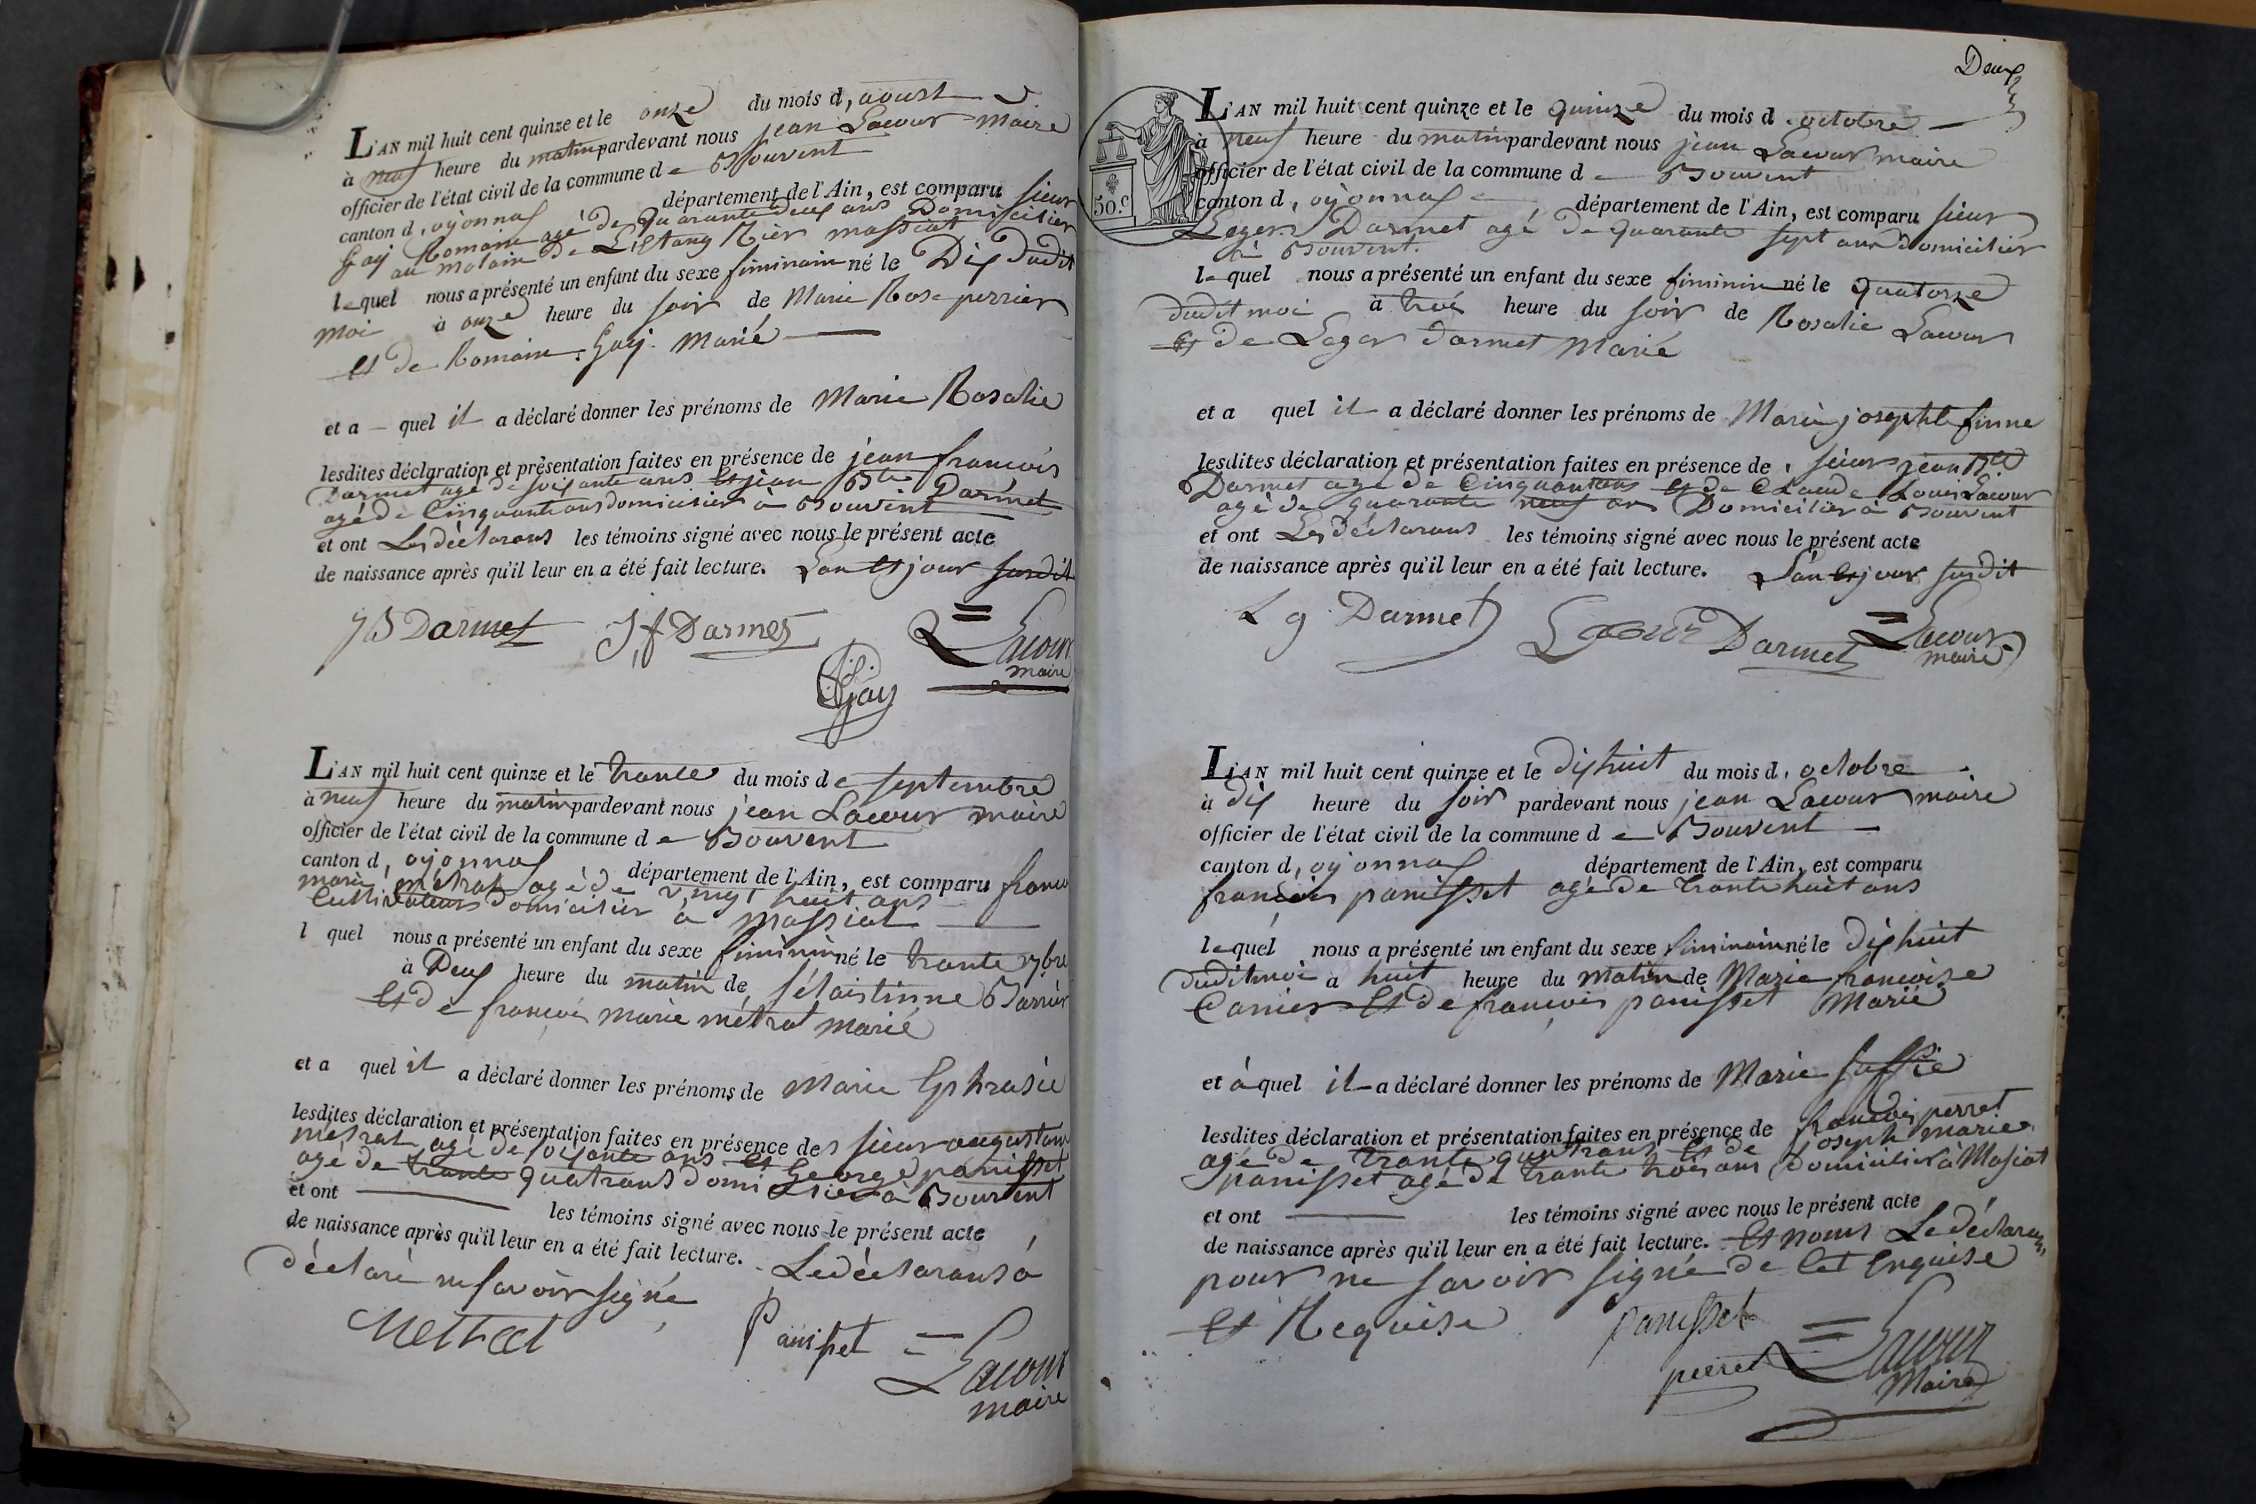 L'AN mil huit cent quinze et le onze du mois d, aoust
à neuf heure du matin pardevant nous jean Lacour maire
officier de l'état civil de la commune de Bouvent
canton d, oyonnax département de l'Ain, est comparu sieur
Gay Romain agé de quarante deux ans Domicilier
au molain de L'Estang Rier massiat
lequel nous a présenté un enfant du sexe fiminain né le Dix dudit
moi à onze heure du soir de Marie Rose perrier
et de Romain Gay Marié
et a quel il a déclaré donner les prénoms de Marie Rosalie
lesdites déclaration et présentation faites en présence de jean françois
Darmet agé de soixante ans et jean Bte Darmet
agé de Cinquante ans domicilier à Bouvent
et ont Les déclarans les témoins signé avec nous le présent acte
de naissance après qu'il leur en a été fait lecture. L'an et jour susdit
JB Darmet J f Darmet Lacour
maire
Gay
L'AN mil huit cent quinze et le trante du mois de septembre
à neuf heure du matin pardevant nous jean Lacour maire
officier de l'état civil de la commune de Bouvent
canton d, oyonnax département de l'Ain, est comparu
marie métrat agé de vingt huit ans
Cultivateur domicilier a massiat
l quel nous a présenté un enfant du sexe fiminin né le trante 7bre
à Deux heure du matin de sélaistinne
et de françois marie métrat marié
et a quel il a déclaré donner les prénoms de Marie Ephrasie
lesdites déclaration et présentation faites en présence des sieur augustin
métrat agé de soixante ans et George panisset
agé de trante quatrans domicilier à Bouvent
et ont les témoins signé avec nous le présent acte
de naissance après qu'il leur en a été fait lecture. Le déclarans à
déclaré ne savoir signé
Metrat Panisset Lacour
maire
Deux
50.c
L'AN mil huit cent quinze et le quinze du mois d octobre
à neuf heure du matin pardevant nous jean Lacour maire
officier de l'état civil de la commune de Bouvent
canton d, oyonnax département de l'Ain, est comparu sieur
Leger Darmet agé de quarante sept ans domicilier
à Bouvent.
lequel nous a présenté un enfant du sexe fiminin né le quatorze
dudit moi à trois heure du soir de Rosalie Lacour
et de Leger darmet Marié
et a quel il a déclaré donner les prénoms de Marie josephte finne
lesdites déclaration et présentation faites en présence de, sieur jean Bte
Darmet agé de Cinquantans et de Claude Louis Lacour
agé de quarante neuf ans Domicilier à Bouvent
et ont Les déclarans les témoins signé avec nous le présent acte
de naissance après qu'il leur en a été fait lecture. L'an et jour susdit
L g Darmet Lacour Darmet Lacour
maire
L'AN mil huit cent quinze et le dixhuit du mois d, octobre
à dix heure du soir pardevant nous jean Lacour maire
officier de l'état civil de la commune de Bouvent
canton d, oyonnax département de l'Ain, est comparu
françois panisset agé de trante huit ans
lequel nous a présenté un enfant du sexe fiminain né le dixhuit
dudit moi à huit heure du matin de Marie françoise
Carrier et de françois panisset Marié
et à quel il a déclaré donner les prénoms de Marie suffie
lesdites déclaration et présentation faites en présence de françois perret
agé de trante quatrans et de joseph marie
panisset agé de trante trois ans domicilier à Massiat
et ont les témoins signé avec nous le présent acte
de naissance après qu'il leur en a été fait lecture. Et noms Le déclarans
pour ne savoir signé de Cet Enquise
et Requise panisset
perret Lacour
Maire